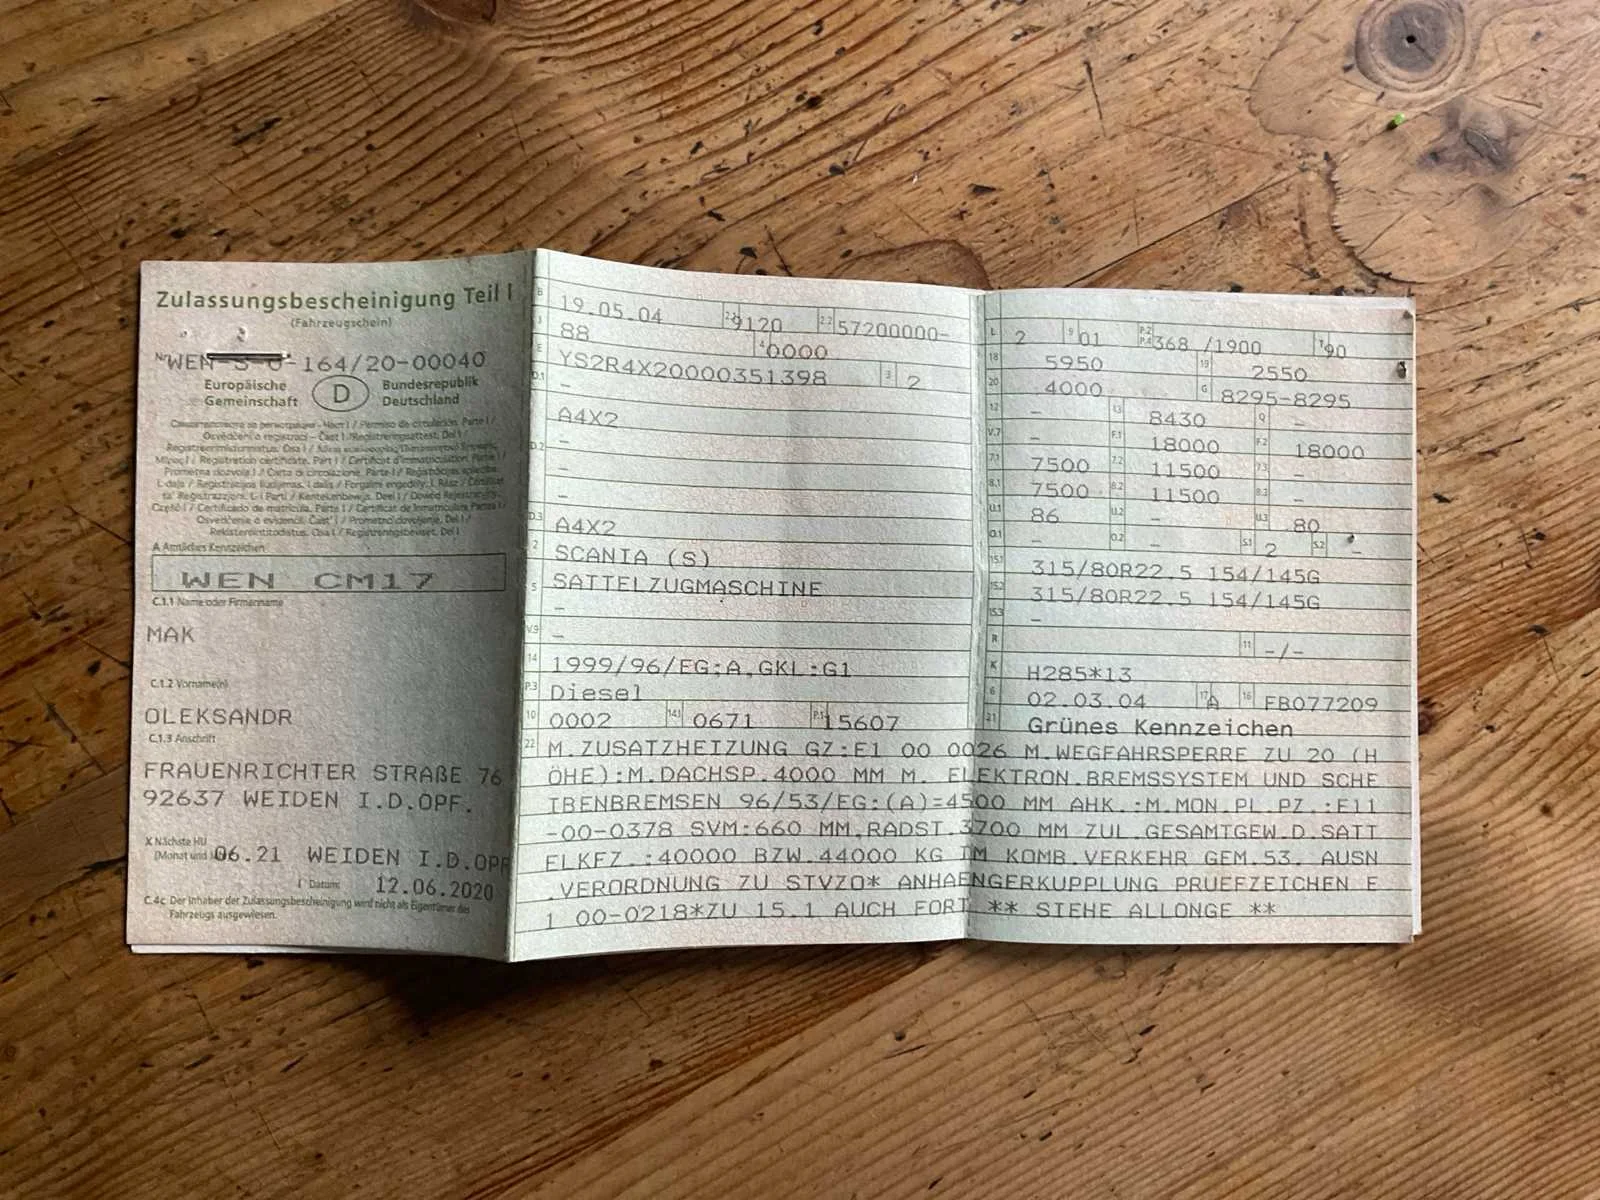 Zulassungsbescheinigung Teil I
(Fahrzeugschein)
Nr. WEN-S-U-164/20-00040
Europäische Gemeinschaft
D
Bundesrepublik Deutschland
A Amtliches Kennzeichen
WEN CM17
C.1.1 Name oder Firmenname
MAK
C.1.2 Vorname(n)
OLEKSANDR
C.1.3 Anschrift
FRAUENRICHTER STRAßE 76
92637 WEIDEN I.D.OPF.
X Nächste HU
(Monat und 06.21 WEIDEN I.D.OPF
I Datum: 12.06.2020
C.4c Der Inhaber der Zulassungsbescheinigung wird nicht als Eigentümer des
Fahrzeugs ausgewiesen.
B 19.05.04 2.1 9120 2.2 57200000-
J 88 4 0000
E YS2R4X20000351398 3 2
D.1 –
A4X2
D.2 –
–
–
D.3 A4X2
2 SCANIA (S)
5 SATTELZUGMASCHINE
–
V.9 –
14 1999/96/EG;A,GKL:G1
P.3 Diesel
10 0002 14.1 0671 P.1 15607
L 2 9 01 P.2 P.4 368 /1900 T 90
18 5950 19 2550
20 4000 G 8295-8295
12 – 13 8430 Q –
V.7 – F.1 18000 F.2 18000
7.1 7500 7.2 11500 7.3 –
8.1 7500 8.2 11500 8.3 –
U.1 86 U.2 – U.3 80
O.1 – O.2 – S.1 2 S.2 –
15.1 315/80R22.5 154/145G
15.2 315/80R22.5 154/145G
15.3 –
R 11 -/-
K H285*13
6 02.03.04 17 A 16 FB077209
21 Grünes Kennzeichen
22 M.ZUSATZHEIZUNG GZ:E1 00 0026 M.WEGFAHRSPERRE ZU 20 (H
ÖHE):M.DACHSP.4000 MM M. ELEKTRON.BREMSSYSTEM UND SCHE
IBENBREMSEN 96/53/EG:(A)=4500 MM AHK.:M.MON.PL.PZ.:E11
-00-0378 SVM:660 MM,RADST.3700 MM ZUL.GESAMTGEW.D.SATT
ELKFZ.:40000 BZW.44000 KG IM KOMB.VERKEHR GEM.53. AUSN
.VERORDNUNG ZU STVZO* ANHAENGERKUPPLUNG PRUEFZEICHEN E
1 00-0218*ZU 15.1 AUCH FORT ** SIEHE ALLONGE **